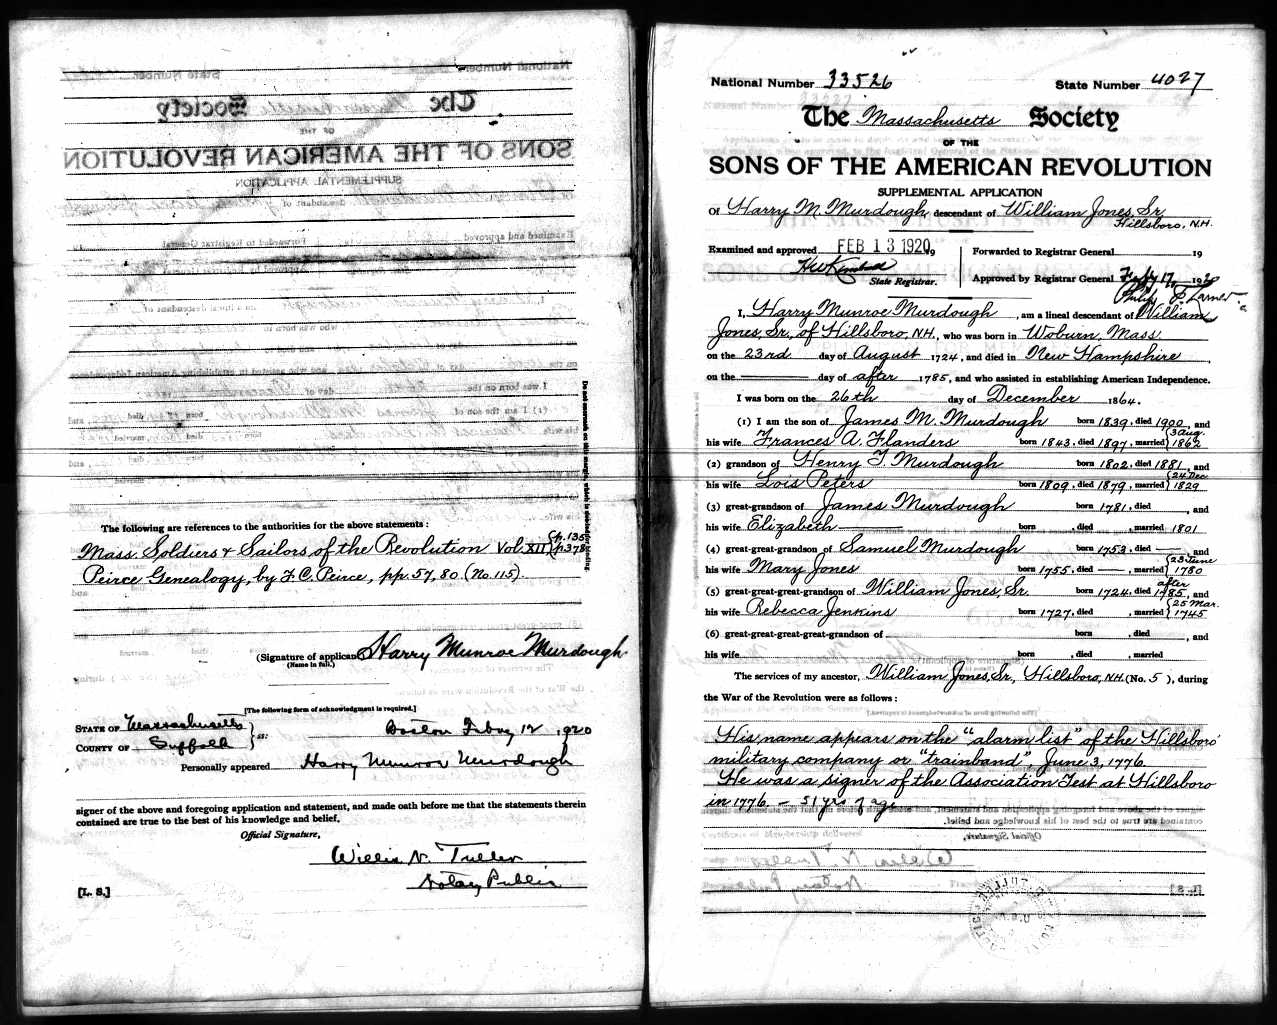 The following are references to the authorities for the above statements :
Mass. Soldiers & Sailors of the Revolution Vol. XII {p. 135 p. 378
Peirce Genealogy, by F. C. Peirce, pp. 57, 80. (No. 115).
(Signature of applicant) Harry Munroe Murdough
(Name in full.)
[The following form of acknowledgment is required.]
STATE OF Massachusetts
COUNTY OF Suffolk } ss:
Boston Feby 12, 1920
Personally appeared Harry Munroe Murdough
signer of the above and foregoing application and statement, and made oath before me that the statements therein
contained are true to the best of his knowledge and belief.
Official Signature,
Willis N. Tuller
Notary Public
[L. S.]
Do not encroach on this margin, which is needed for binding.
National Number 33526 State Number 4027
The Massachusetts Society
OF THE
SONS OF THE AMERICAN REVOLUTION
SUPPLEMENTAL APPLICATION
Of Harry M. Murdough, descendant of William Jones, Sr
Hillsboro, N.H.
Examined and approved FEB 13 1920 19
State Registrar.
Forwarded to Registrar General 19
Approved by Registrar General Feby 17, 1920
Philip F. Larner
I, Harry Munroe Murdough, am a lineal descendant of William
Jones, Sr., of Hillsboro, N.H., who was born in Woburn, Mass.
on the 23rd day of August 1724, and died in New Hampshire,
on the day of after 1785, and who assisted in establishing American Independence.
I was born on the 26th day of December 1864.
(1) I am the son of James M. Murdough born 1839, died 1900, and
his wife Frances A. Flanders born 1843, died 1897, married {3 Aug. 1862
(2) grandson of Henry F. Murdough born 1802, died 1881, and
his wife Lois Peters born 1809, died 1879, married {24 Dec 1829
(3) great-grandson of James Murdough born 1781, died , and
his wife Elizabeth born , died , married 1801
(4) great-great-grandson of Samuel Murdough born 1753, died — , and
his wife Mary Jones born 1755, died — , married {23 June 1780
(5) great-great-great-grandson of William Jones, Sr. born 1724, died after 1785, and
his wife Rebecca Jenkins born 1727, died , married {25 Mar. 1745
(6) great-great-great-great-grandson of born , died , and
his wife born , died , married
The services of my ancestor, William Jones, Sr., Hillsboro, N.H. (No. 5 ), during
the War of the Revolution were as follows :
His name appears on the "alarm list" of the Hillsboro'
military company or "trainband", June 3, 1776.
He was a signer of the Association Test at Hillsboro
in 1776. — 51 yrs of age